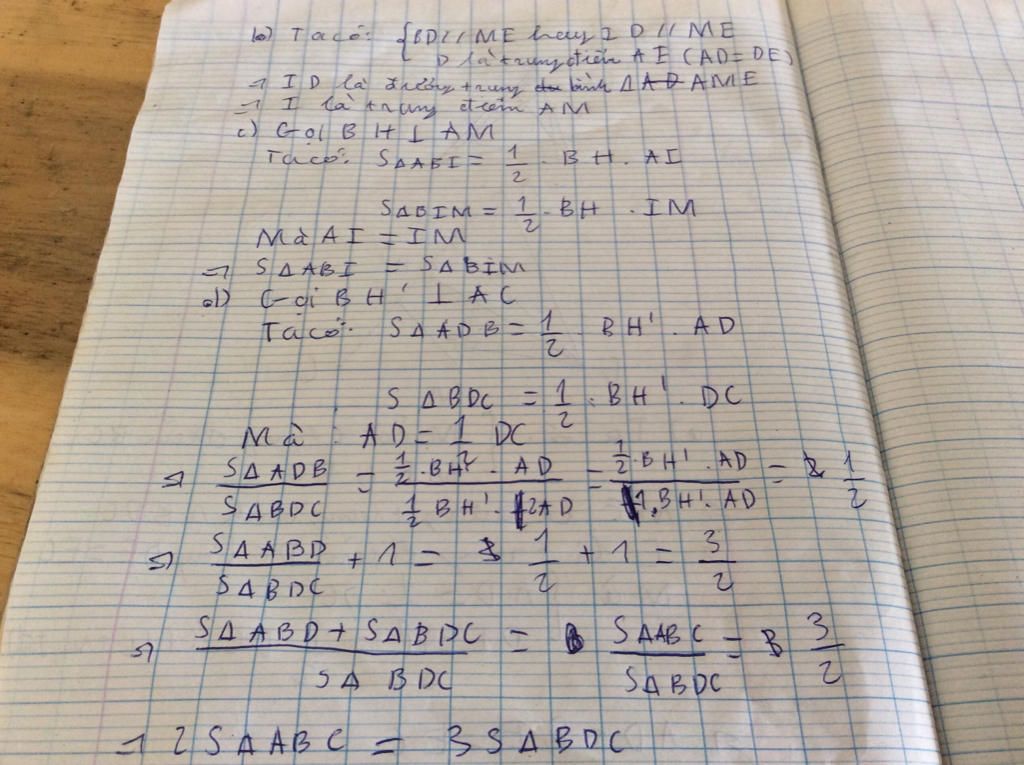 b) Ta có: {BD // ME hay ID // ME
D là trung điểm AI (AD = DE)
⇒ ID là đường trung bình Δ AME
⇒ I là trung điểm AM
c) Gọi BH ⊥ AM
Ta có: SΔABI = 1/2 · BH · AI
SΔBIM = 1/2 · BH · IM
Mà AI = IM
⇒ SΔABI = SΔBIM
d) Gọi BH' ⊥ AC
Ta có: SΔADB = 1/2 · BH' · AD
SΔBDC = 1/2 · BH' · DC
Mà : AD = 1/2 DC
⇒ SΔADB / SΔBDC = (1/2 · BH' · AD) / (1/2 BH' · 2AD) = (1/2 · BH' · AD) / (1 · BH' · AD) = 1/2
⇒ SΔABD / SΔBDC + 1 = 1/2 + 1 = 3/2
⇒ (SΔABD + SΔBDC) / SΔBDC = SΔABC / SΔBDC = 3/2
⇒ 2SΔABC = 3SΔBDC